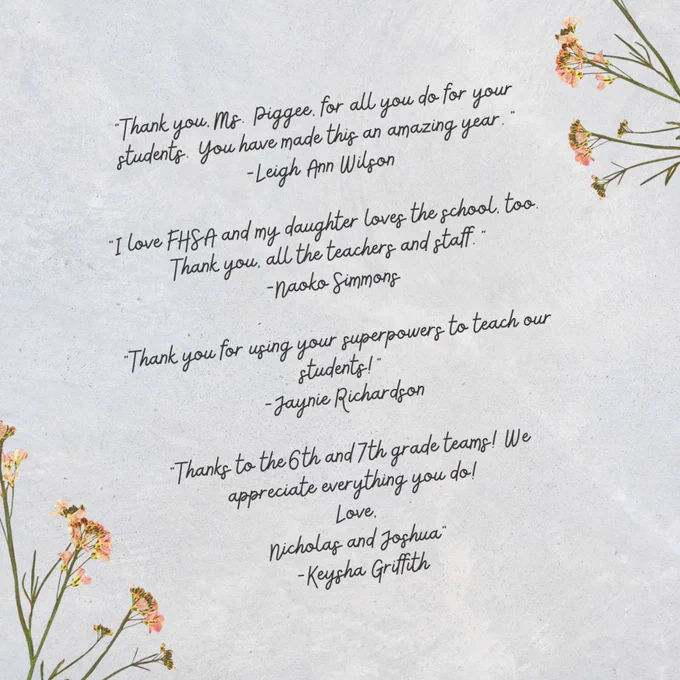 "Thank you, Ms. Piggee, for all you do for your
students. You have made this an amazing year."
-Leigh Ann Wilson
"I love FHSA and my daughter loves the school, too.
Thank you, all the teachers and staff."
-Naoko Simmons
"Thank you for using your superpowers to teach our
students!"
-Jaynie Richardson
"Thanks to the 6th and 7th grade teams! We
appreciate everything you do!
Love,
Nicholas and Joshua"
-Keysha Griffith